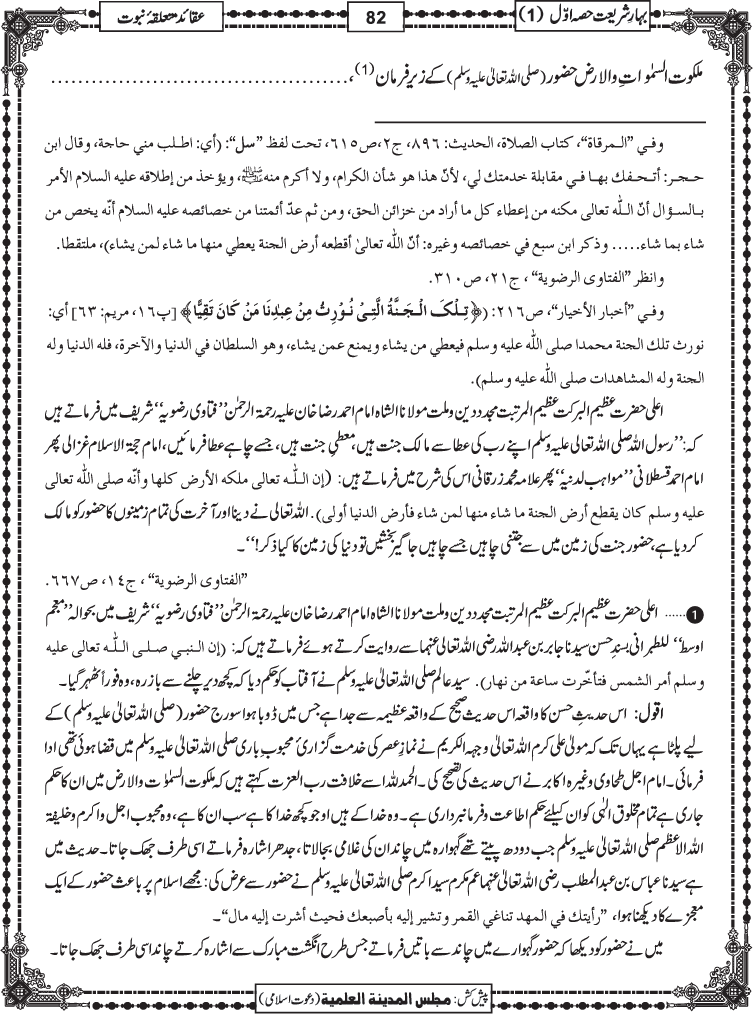 بہارِ شریعت حصہ اوّل (1)
82
عقائد متعلقۂ نبوت
ملکوت السمٰوات والارض حضور (صلی اللہ تعالیٰ علیہ وسلم) کے زیرِ فرمان (1)، ............................................
وفي ”الـمرقاة“، كتاب الصلاة، الحديث: ٨٩٦، ج٢،ص٦١٥، تحت لفظ ”سل“: (أي: اطلب مني حاجة، وقال ابن
حـجـر: أتـحـفك بهـا فـي مقابلة خدمتك لي، لأنّ هذا هو شأن الكرام، ولا أكرم منهﷺ، ويؤخذ من إطلاقه عليه السلام الأمر
بـالسـؤال أنّ اللّٰه تعالى مكنه من إعطاء كل ما أراد من خزائن الحق، ومن ثم عدّ أئمتنا من خصائصه عليه السلام أنّه يخص من
شاء بما شاء..... وذكر ابن سبع في خصائصه وغيره: أنّ اللّٰه تعالىٰ أقطعه أرض الجنة يعطي منها ما شاء لمن يشاء)، ملتقطا.
وانظر ”الفتاوى الرضوية“ ، ج٢١، ص٣١٠.
وفـي ”أخبار الأخيار“، ص٢١٦: (﴿ تِـلْكَ الْـجَـنَّةُ الَّتِیْ نُـوْرِثُ مِنْ عِبَادِنَا مَنْ كَانَ تَقِیًّا﴾ [پ١٦، مريم: ٦٣] أي:
نورث تلك الجنة محمدا صلى اللّٰه عليه وسلم فيعطي من يشاء ويمنع عمن يشاء، وهو السلطان في الدنيا والآخرة، فله الدنيا وله
الجنة وله المشاهدات صلى اللّٰه عليه وسلم).
اعلیٰ حضرت عظیم البرکت عظیم المرتبت مجدد دین وملت مولانا الشاہ امام احمد رضا خان علیہ رحمۃ الرحمٰن ”فتاوی رضویہ“ شریف میں فرماتے ہیں
کہ: ”رسول اللہ صلی اللہ تعالیٰ علیہ وسلم اپنے رب کی عطا سے مالک جنت ہیں، معطیِ جنت ہیں، جسے چاہے عطا فرمائیں، امام حجۃ الاسلام غزالی پھر
امام احمد قسطلانی ”مواہب لدنیہ“ پھر علامہ محمد زرقانی اس کی شرح میں فرماتے ہیں: (إن اللّٰـه تعالى ملكه الأرض كلها وأنّه صلى اللّٰه تعالى
عليه وسلم كان يقطع أرض الجنة ما شاء منها لمن شاء فأرض الدنيا أولى). اللہ تعالیٰ نے دینا اور آخرت کی تمام زمینوں کا حضور کو مالک
کر دیا ہے، حضور جنت کی زمین میں سے جتنی چاہیں جسے چاہیں جاگیر بخشیں تو دنیا کی زمین کا کیا ذکر!“۔
”الفتاوى الرضوية“ ، ج١٤، ص٦٦٧.
1 ...... اعلی حضرت عظیم البرکت عظیم المرتبت مجدد دین وملت مولانا الشاہ امام احمد رضا خان علیہ رحمۃ الرحمٰن ”فتاوی رضویہ“ شریف میں بحوالہ ”معجم
اوسط“ للطبرانی بسندِ حسن سیدنا جابر بن عبد اللہ رضی اللہ تعالیٰ عنہما سے روایت کرتے ہوئے فرماتے ہیں کہ: (إن الـنبـي صـلـى اللّٰـه تعالى عليه
وسلم أمر الشمس فتأخّرت ساعة من نهار). سید عالم صلی اللہ تعالیٰ علیہ وسلم نے آفتاب کو حکم دیا کہ کچھ دیر چلنے سے باز رہ، وہ فوراً ٹھہر گیا۔
اقول: اس حدیثِ حسن کا واقعہ اس حدیث صحیح کے واقعہ عظیمہ سے جدا ہے جس میں ڈوبا ہوا سورج حضور (صلی اللہ تعالیٰ علیہ وسلم) کے
لیے پلٹا ہے یہاں تک کہ مولیٰ علی کرم اللہ تعالیٰ وجہہ الکریم نے نمازِ عصر کی خدمت گزاریٔ محبوبِ باری صلی اللہ تعالیٰ علیہ وسلم میں قضا ہوئی تھی ادا
فرمائی۔ امام اجل طحاوی وغیرہ اکابر نے اس حدیث کی تصحیح کی۔ الحمد للہ اسے خلافت رب العزت کہتے ہیں کہ ملکوت السمٰوٰت والارض میں ان کا حکم
جاری ہے تمام مخلوق الٰہی کو ان کیلئے حکم اطاعت و فرمانبرداری ہے۔ وہ خدا کے ہیں اور جو کچھ خدا کا ہے سب ان کا ہے، وہ محبوب اجل واکرم وخلیفۃ
اللہ الاعظم صلی اللہ تعالیٰ علیہ وسلم جب دودھ پیتے تھے گہوارہ میں چاند ان کی غلامی بجالاتا، جدھر اشارہ فرماتے اسی طرف جھک جاتا۔ حدیث میں
ہے سیدنا عباس بن عبدالمطلب رضی اللہ تعالیٰ عنہما عم مکرم سید اکرم صلی اللہ تعالیٰ علیہ وسلم نے حضور سے عرض کی: مجھے اسلام پر باعث حضور کے ایک
معجزے کا دیکھنا ہوا، ”رأيتك في المهد تناغي القمر وتشير إليه بأصبعك فحيث أشرت إليه مال“۔
میں نے حضور کو دیکھا کہ حضور گہوارے میں چاند سے باتیں فرماتے جس طرح انگشت مبارک سے اشارہ کرتے چاند اسی طرف جھک جاتا۔
پیش کش: مجلس المدينة العلمية (دعوت اسلامی)